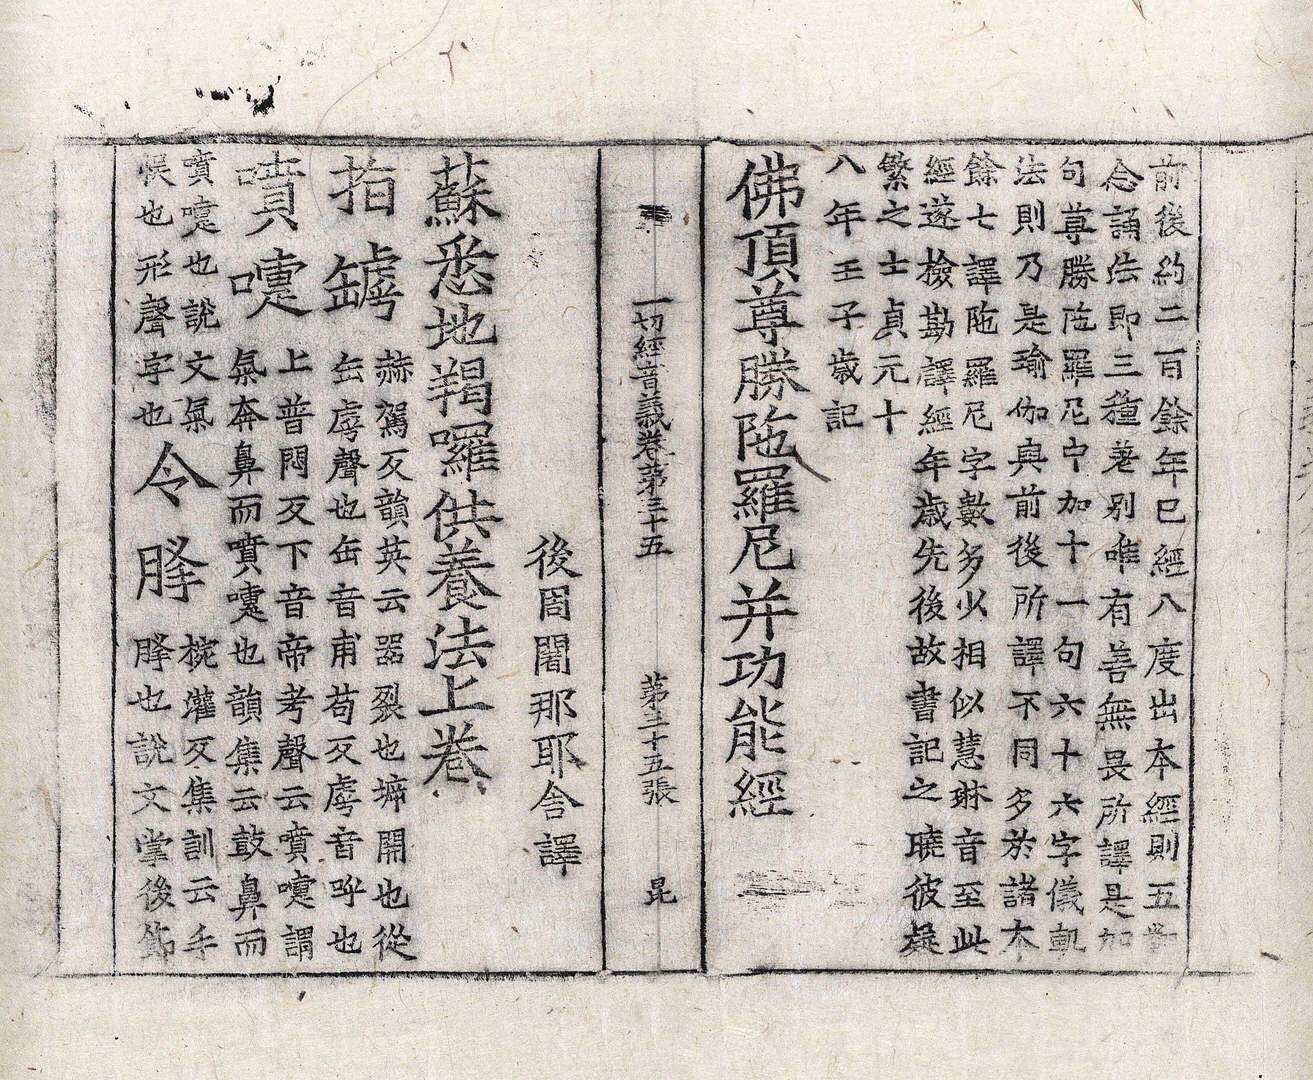 前後約二百餘年已經八度出本經則五
念誦法即三種差別唯有善無畏所譯是加
句尊勝陁羅尼中加十一句六十六字儀軌
法則乃是瑜伽與前後所譯不同多於諸本
餘七譯陁羅尼字數多少相似慧琳音至此
經遂撿勘譯經年歲先後故書記之曉彼疑
繁之士貞元十
八年壬子歲記
佛頂尊勝陁羅尼并功能經
一切經音義卷第三十五 第三十五張 昆
後周闍那耶舍譯
蘇悉地羯囉供養法上卷
㧞罅
赫駕反韻英云器裂也㙠開也從
缶虖聲也缶音甫苟反虖音呼也
噴嚏
上普悶反下音帝考聲云噴嚏謂
氣奔鼻而噴嚏也韻集云鼓鼻而
噴嚏也說文氣
悞也形聲字也
令𦙶
椀灌反集訓云手
𦙶也說文掌後節